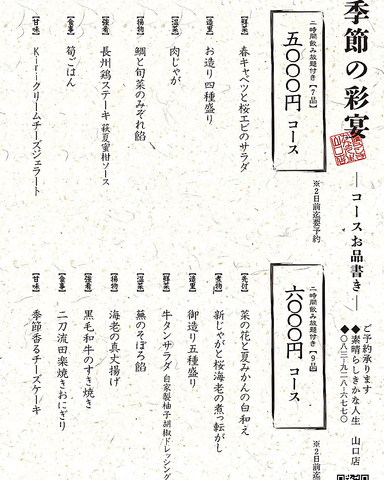 季節の彩宴
― コースお品書き ―
ご予約承ります
◆素晴らしきかな人生 山口店
◆〇八三-九二八-六七七〇
二時間飲み放題付き【7品】
五〇〇〇円 コース
※2日前迄要予約
【鮮菜】 春キャベツと桜エビのサラダ
【造り】 お造り四種盛り
【温菜】 肉じゃが
【揚物】 鯛と旬菜のみぞれ餡
【強肴】 長州鶏ステーキ 萩夏蜜柑ソース
【食事】 筍ごはん
【甘味】 Kiriクリームチーズジェラート
二時間飲み放題付き【9品】
六〇〇〇円 コース
※2日前迄
【先付】 菜の花と夏みかんの白和え
【煮物】 新じゃがと桜海老の煮っ転がし
【造り】 御造り五種盛り
【鮮菜】 牛タンサラダ 自家製柚子胡椒ドレッシング
【温菜】 蕪のそぼろ餡
【揚物】 海老の真丈揚げ
【強肴】 黒毛和牛のすき焼き
【食事】 二刀流田楽焼きおにぎり
【甘味】 季節香るチーズケーキ